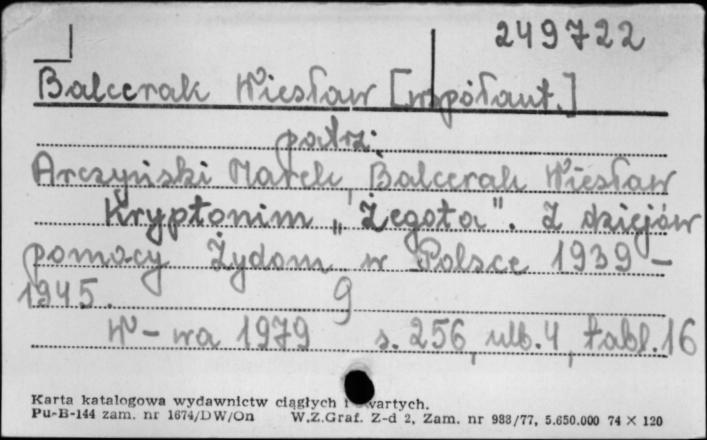 249722
Balcerak Wiesław [współaut.]
patrz:
Arczyński Marek, Balcerak Wiesław
Kryptonim „Żegota". Z dziejów
pomocy Żydom w Polsce 1939 –
1945. 9
W-wa 1979 s. 256, ulb. 4, tabl. 16
Karta katalogowa wydawnictw ciągłych i wartych.
Pu-B-144 zam. nr 1674/DW/On W.Z.Graf. Z-d 2, Zam. nr 988/77, 5.650.000 74 × 120